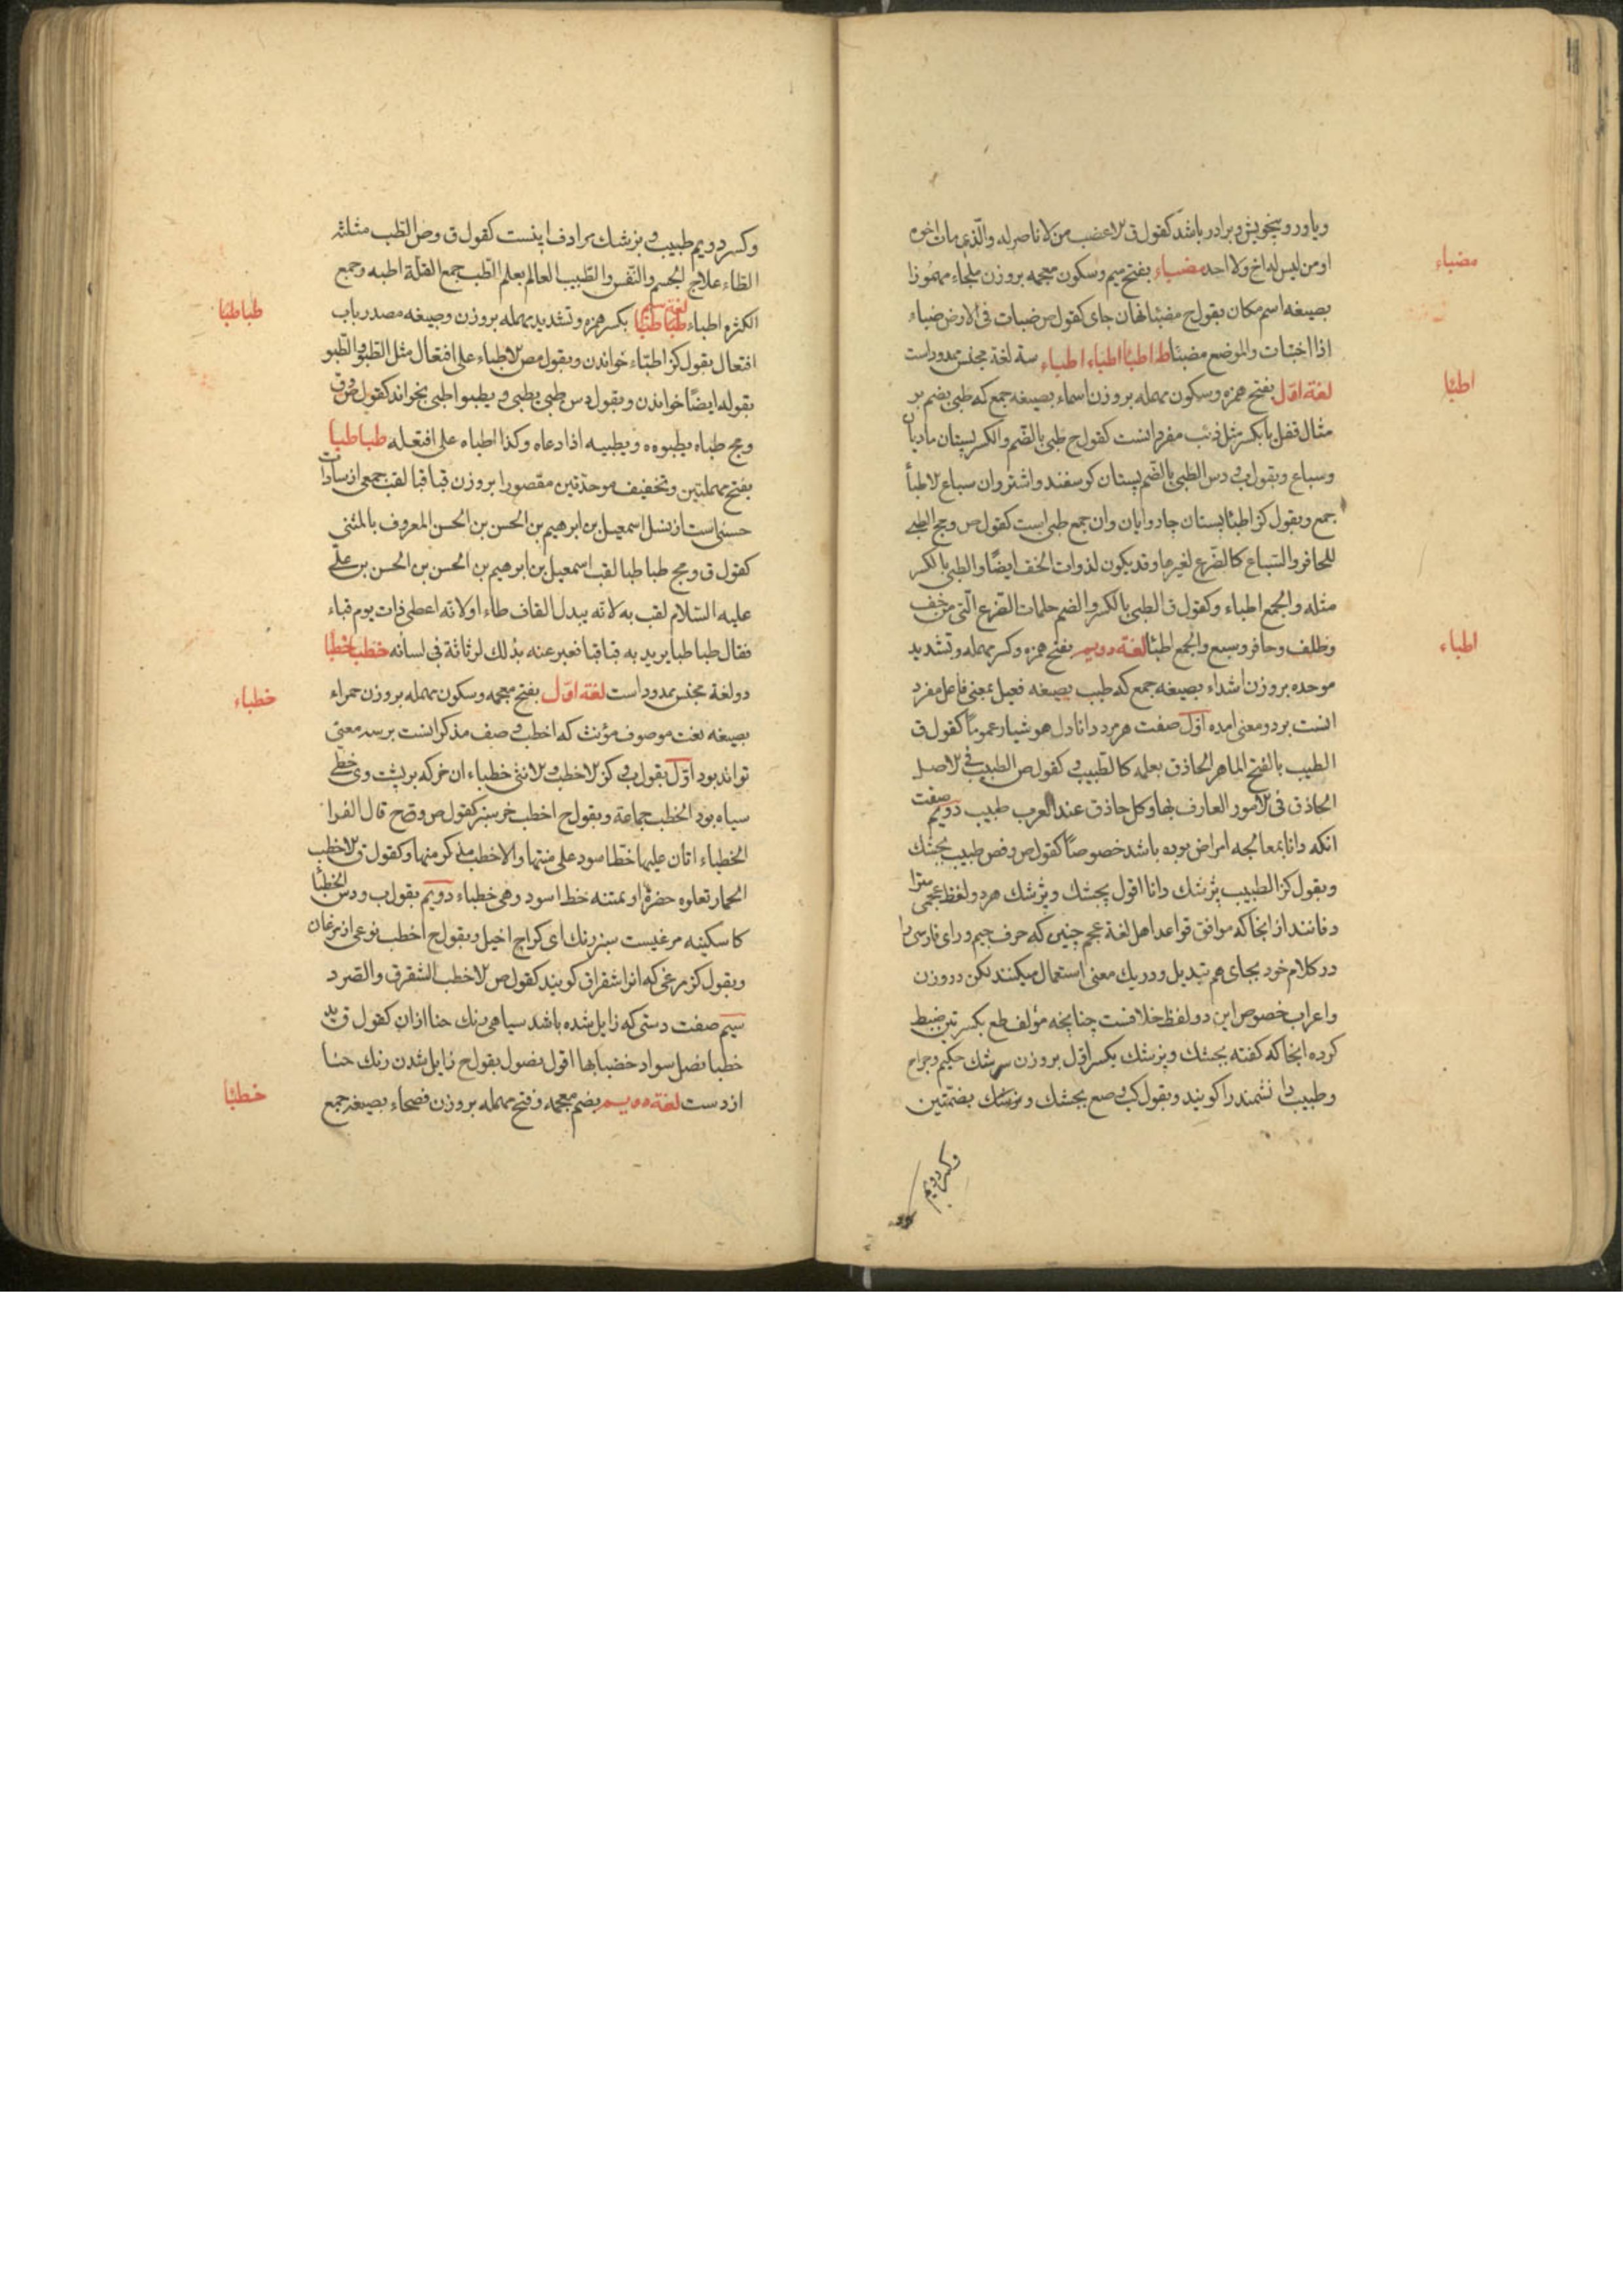 ویاور و بیخویش و برادر باشد کقول ق الاعضب من لا ناصر له والذی مات اخوه
او من لیس له اخ ولا احد مضباء بفتح میم وسکون معجمه بروزن ملجاء مهموزا
بصیغه اسم مکان بقول ح مضبئا نهان جای کقول ص ضبات فی الارض ضباء
اذا اختبات والموضع مضبئا ط اطبئا اطباء اطباء سه لغة مجنس ممدود است
لغة اول بفتح همزه وسکون مهمله بروزن اسماء بصیغه جمع که طبی بضم بر
مثال قفل یا بکسر مثل ذئب مفرد انست کقول ح طبی بالضم والکسر پستان مادیان
وسباع وبقول ب دس الطبی بالضم پستان کوسفند واشتر وان سباع الاطبأ
جمع وبقول کز اطبئا پستان چاروایان وان جمع طبی است کقول ص ومج الطبی
للحافر والسباع کالضرع لغیرها وقد یکون لذوات الخف ایضا والطبی بالکسر
مثله والجمع اطباء وکقول ق الطبی بالکسر والضم حلمات الضرع التی من خف
وظلف وحافر وسبع والجمع اطبئا لغة دویم بفتح همزه وکسر مهمله وتشدید
موحده بروزن اشداء بصیغه جمع که طبیب بصیغه فعیل بمعنی فاعل مفرد
انست بر دو معنی امده اول صفت هر مرد دانا دل هوشیار عموما کقول ق
الطبیب بالفتح الماهر الحاذق بعلمه کالطبیب و کقول ص الطبیب فی الاصل
الحاذق فی الامور العارف بها وکل حاذق عند العرب طبیب دویم صفت
انکه دانا بمعالجه امراض بوده باشد خصوصا کقول ص وفص طبیب بجشک
وبقول کز الطبیب پزشک دانا اقول بجشک وپزشک هر دو لفظ عجمی مترا
دفانند از انجا که موافق قواعد اهل لغة عجم چنین که حرف جیم و رای فارسی را
در کلام خود بجای هم تبدیل ودر یک معنی استعمال میکنند لکن در وزن
واعراب خصوص این دو لفظ خلافست چنانچه مؤلف طع بکسرتین ضبط
کرده انجا که کفته بجشک وپزشک بکسر اول بروزن سرشک حکیم وجراح
وطبیب دانشمند را کویند وبقول ک وصع بجشک وپزشک بضمتین
وکسر دویم
مضباء
اطبئا
اطباء
وکسر دویم طبیب و بزشک مرادف اینست کقول ق وص الطب مثلثة
الطاء علاج الجسم والنفس والطبیب العالم بعلم الطب جمع القلة اطبه وجمع
الکثره اطباء لغة سیم طباطبئا بکسر همزه وتشدید مهمله بروزن وصیغه مصدر باب
افتعال بقول کز اطباء خواندن وبقول مص الاطباء علی افتعال مثل الطبو والطبو
بقوله ایضا خواندن وبقول دس طبی یطبی و یطبو اطبی بخواند کقول ص وق
ومج طباه یطبوه و یطبیه اذا دعاه وکذا اطباه علی افتعله طباطبا
بفتح مهملتین وتخفیف موحدتین مقصورا بروزن قباقبا لقب جمعی از سادات
حسنی است از نسل اسمعیل بن ابرهیم بن الحسن بن الحسن المعروف بالمثنی
کقول ق ومج طباطبا لقب اسمعیل بن ابرهیم بن الحسن بن الحسن بن علی
علیه السلام لقب به لانه یبدل القاف طاء او لانه اعطی ذات یوم قباء
فقال طباطبا یرید به قباقبا فعبر عنه بذلک لرثاثة فی لسانه خطبا خطبا
دو لغة مجنس ممدود است لغة اول بفتح معجمه وسکون مهمله بروزن حمراء
بصیغه نعت موصوف مؤنث که اخطب وصف مذکر انست بر سه معنی
تواند بود اول بقول ب وکز الاخطب والانثی خطباء ان خر که بر پشت وی خطی
سیاه بود الخطب جماعة وبقول ح اخطب خر سبز کقول ص وضح قال الفرا
الخطباء اتان علیها خط اسود علی متنها والاخطب مذکر منها وکقول ق الاخطب
الحمار تعلوه خضرة او بمتنه خط اسود وهی خطباء دویم بقول ب ودس الخطبا
کاسکینه مرغیست سبز رنک ای کراج اخیل وبقول ح اخطب نوعی از مرغان
وبقول کز مرغی که انرا شقراق کویند کقول ص الاخطب الشقراق والصرد
سیم صفت دستی که زایل شده باشد سیاهی رنک حنا ازان کقول ق ید
خطبا نصل سواد خضابها اقول نصول بقول ح زایل شدن رنک حنا
از دست لغة دویم بضم معجمه وفتح مهمله بروزن فصحاء بصیغه جمع
طباطبئا
خطباء
خطبئا